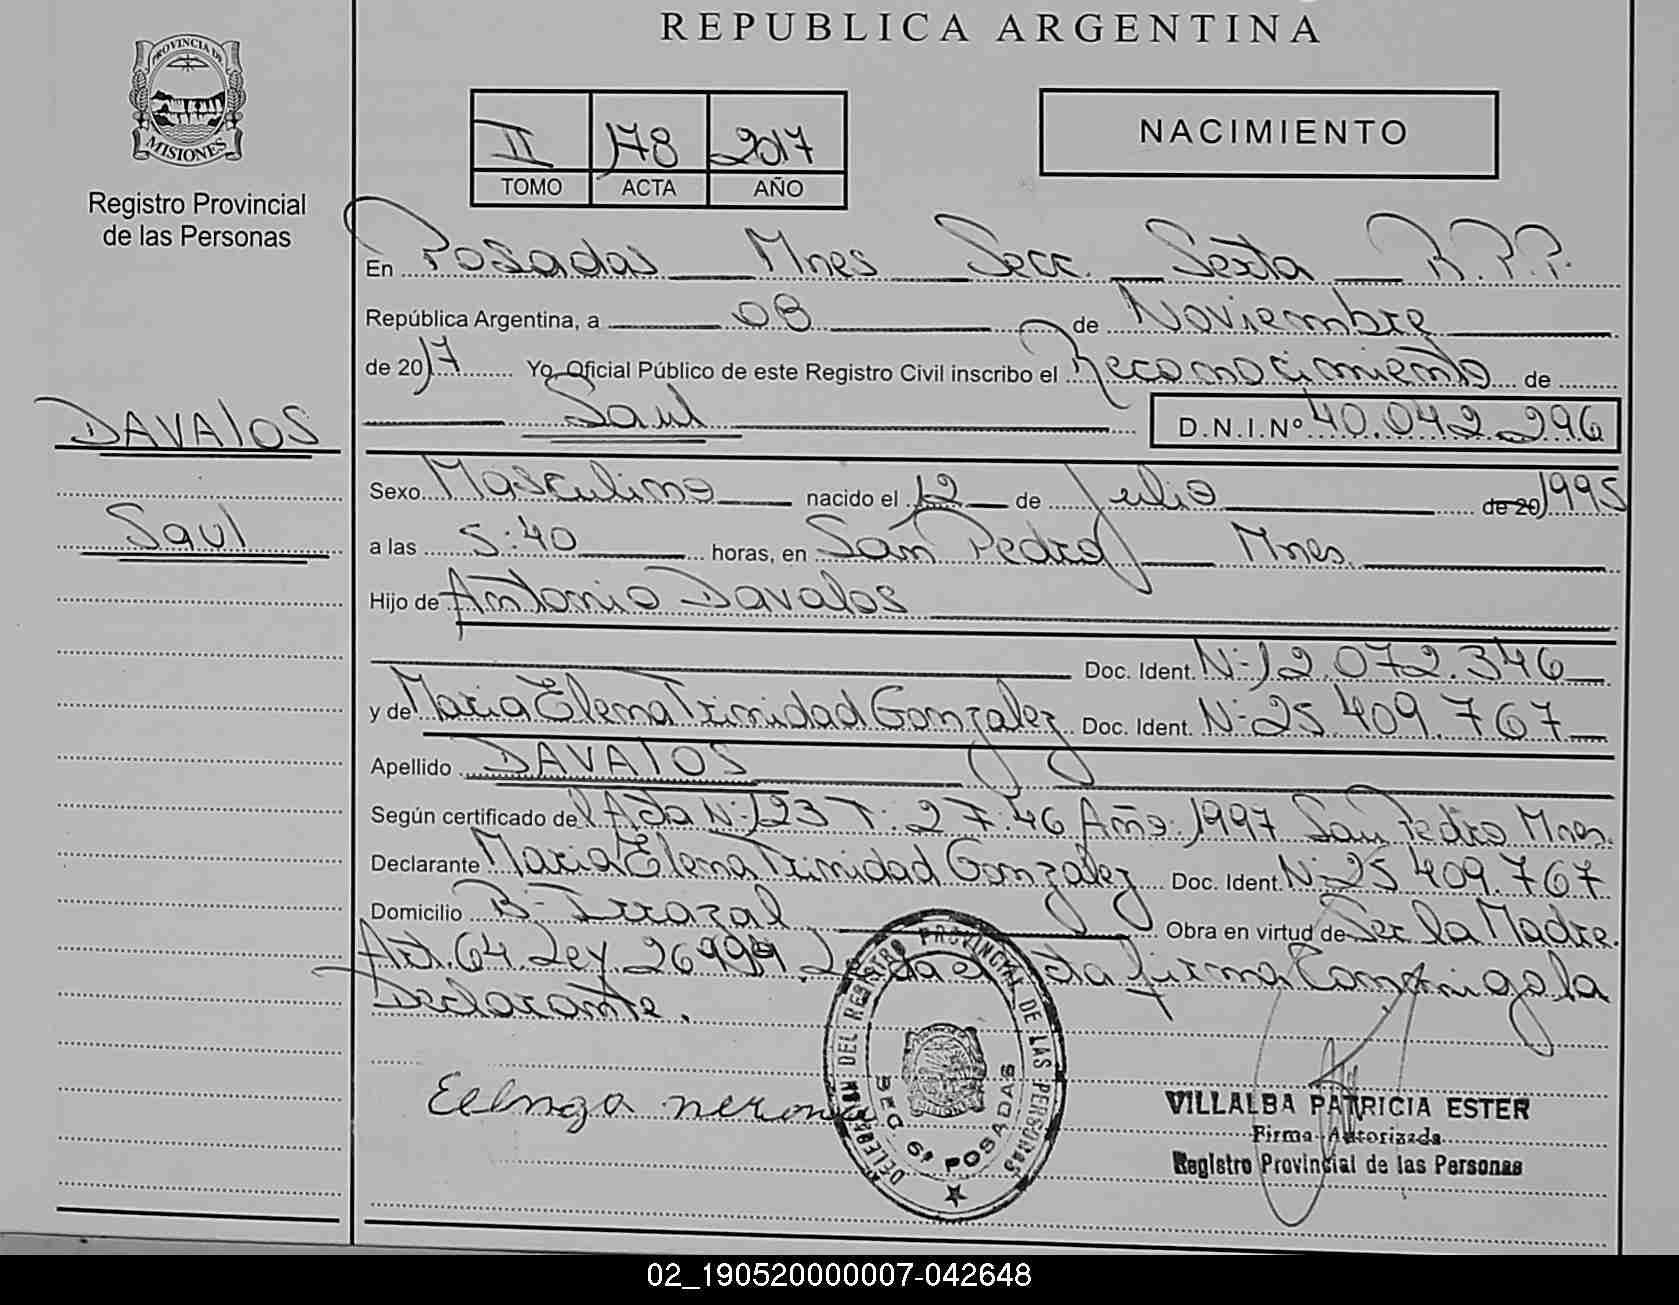 REPUBLICA ARGENTINA
PROVINCIA DE
MISIONES
Registro Provincial
de las Personas
II 178 2017
TOMO ACTA AÑO
NACIMIENTO
En Posadas Mnes Secc. Sexta R.P.P.
República Argentina, a 08 de Noviembre
de 2017 Yo, Oficial Público de este Registro Civil inscribo el Reconocimiento de
Saul D.N.I.Nº 40.042.296
DAVAlOS
Saul
Sexo Masculino nacido el 12 de Julio de 20 1995
a las 5:40 horas, en San Pedro Mnes.
Hijo de Antonio Davalos
Doc. Ident. N-12.072.346
y de Maria Elena Trinidad Gonzalez Doc. Ident. N-25 409.767
Apellido DAVAlOS
Según certificado del Acta N-123 T. 2 F. 46 Año. 1997 San Pedro Mnes.
Declarante Maria Elena Trinidad Gonzalez Doc. Ident. N-25 409.767
Domicilio B- Irrazal Obra en virtud de Ser la Madre.
Art. 64 Ley 26994 firma Conmigo la
Declarante.
DELEGACION DEL REGISTRO PROVINCIAL DE LAS PERSONAS
SEC 6ª POSADAS
VILLALBA PATRICIA ESTER
Firma Autorizada
Registro Provincial de las Personas
02_190520000007-042648